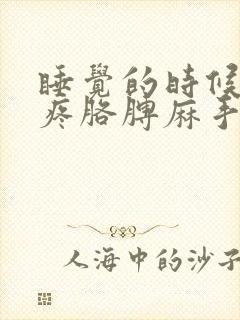 睡覺的時候
疼胳脾麻手
人海中的沙子